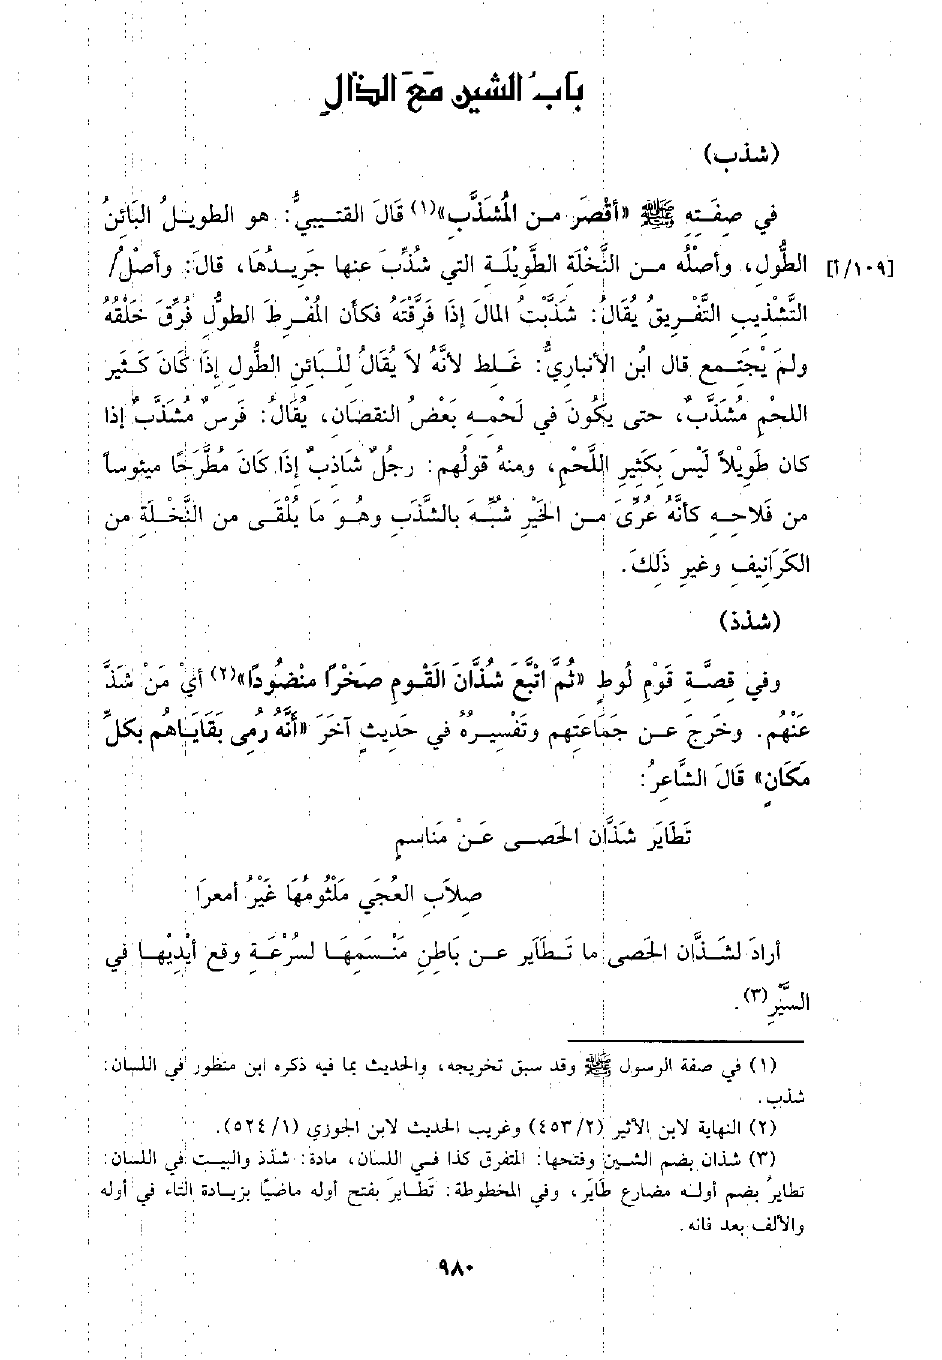 بَابُ الشين مَعَ الذال
(شذب)
في صِفَتِهِ ﷺ «أقْصَر من المُشَذَّب»(١) قَالَ القتيبيُّ: هو الطويلُ البَائنُ
[١٠٩/أ] الطُّول، وأصْلُه من النَّخلَة الطَّوِيلَة التي شُذِّبَ عنها جَرِيدُهَا، قالَ: وأصْلُ/
التَّشْذيبِ التَّفْريقُ يُقَالُ: شَذَّبْتُ المالَ إذَا فَرَّقْتَهُ فكأن المُفْرِطَ الطولُ فُرِّقَ خَلْقُهُ
ولمْ يَجْتَمع قال ابن الأنباريِّ: غَلط لأنَّهُ لاَ يُقَالُ لِلْبَائنِ الطُّول إذَا كَانَ كَثير
اللحْم مُشَذَّبٌ، حتى يكُونَ في لَحْمِه بَعْضُ النقصَان، يُقَالُ: فَرسٌ مُشَذَّبٌ إذا
كان طَوِيْلاً لَيْسَ بكَثيرِ اللَّحْم، ومنهُ قولُهم: رجلٌ شَاذبٌ إذَا كَانَ مُطَّرَحًا ميئوساً
من فَلاحِه كأنَّهُ عُرِّىَ من الخَيْرِ شُبِّهَ بالشَّذَبِ وهُو مَا يُلْقَى من النَّخْلَةِ من
الكَرَانِيفِ وغيرِ ذَلِكَ.
(شذذ)
وفي قِصَّةِ قَوْمِ لُوطٍ «ثُمَّ اتْبَعَ شُذَّانَ القَوْمِ صَخْرًا منْضُودًا»(٢) أيْ مَنْ شَذَّ
عَنْهُم. وخَرجَ عن جَمَاعَتِهم وتَفْسيرُهُ في حَديثٍ آخَرَ «أنَّهُ رُمِى بقَايَاهُم بكلِّ
مَكَانٍ» قَالَ الشَّاعِرُ:
تَطَايَر شَذَّان الحَصى عَنْ مَنَاسِمٍ
صِلاَبِ العُجَي مَلْثُومُهَا غَيْرُ أمعرَا
أرادَ لشَذَّان الحَصى ما تَطَايَر عن بَاطِنِ مَنْسَمِهَا لسُرْعَةِ وقع أيْدِيْهَا في
السَّيْرِ(٣).
(١) في صفة الرسول ﷺ وقد سبق تخريجه، والحديث بما فيه ذكره ابن منظور في اللسان:
شذب.
(٢) النهاية لابن الأثير (٤٥٣/٢) وغريب الحديث لابن الجوزي (٥٢٤/١).
(٣) شذان بضم الشين وفتحها: المتفرق كذا في اللسان، مادة: شذذ والبيت في اللسان:
تطايرُ بضم أوله مضارع طَايَر، وفي المخطوطة: تَطَايرَ بفتح أوله ماضيًا بزيادة التاء في أوله
والألف بعد فائه.
٩٨٠